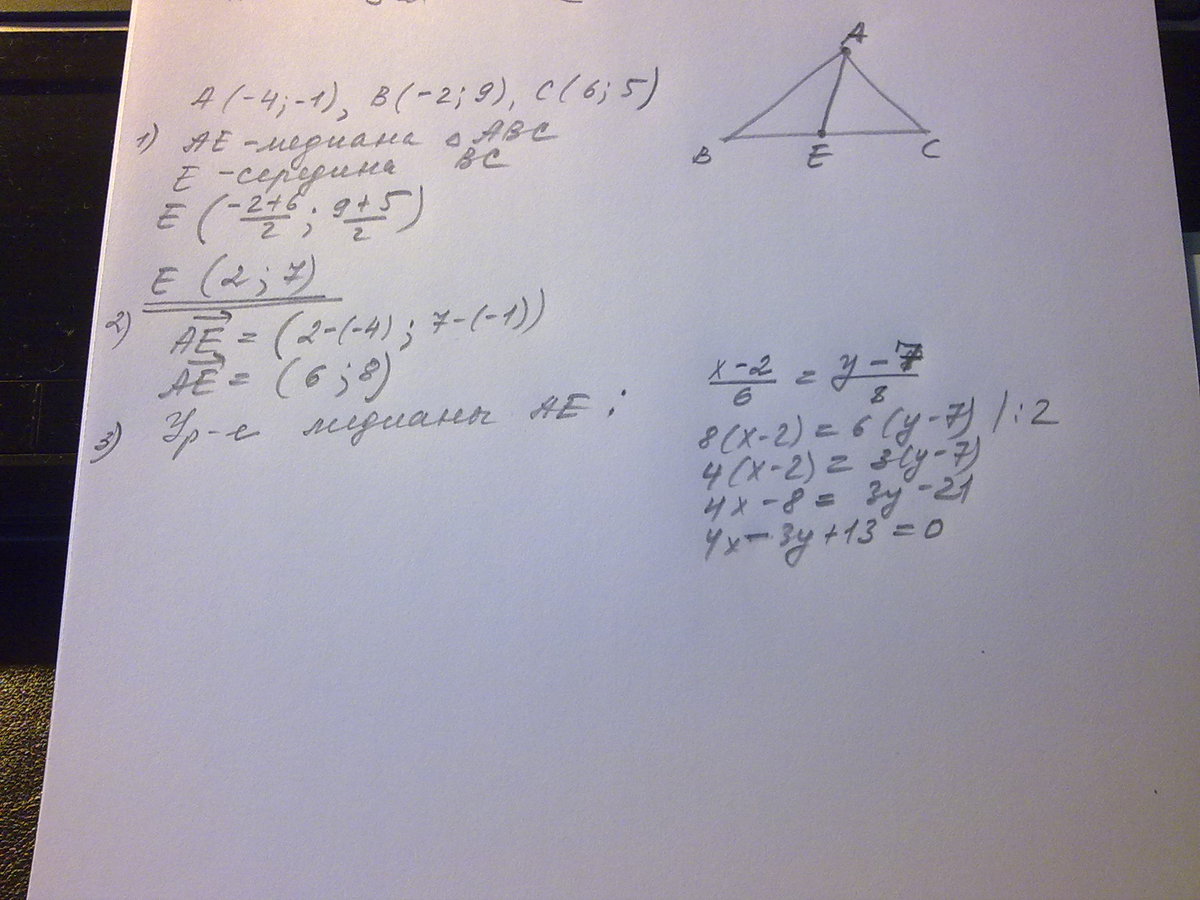 A (-4; -1), B(-2; 9), C(6; 5)
1) AE - медиана △ ABC
E - середина BC
E (-2+6/2 ; 9+5/2)
E (2; 7)
2) AE = (2-(-4); 7-(-1))
AE = (6; 8)
3) Ур-е медианы AE :
x-2/6 = y-7/8
8(x-2) = 6(y-7) / :2
4(x-2) = 3(y-7)
4x-8 = 3y-21
4x-3y+13=0
A
B
E
C